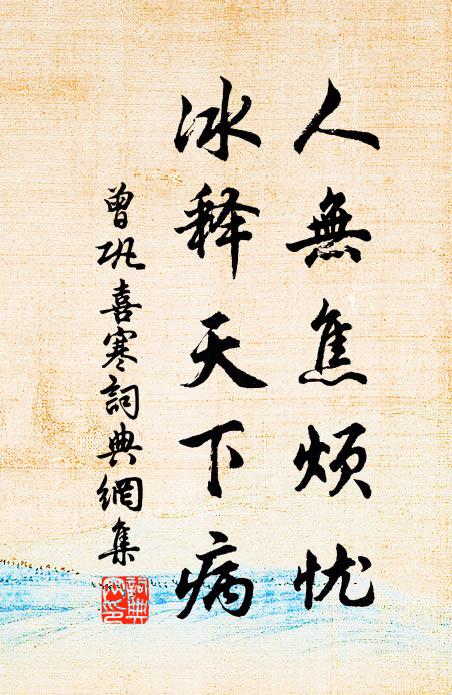 人無焦煩忧
冰释天下病
曾巩喜寒詞典網集
詞典網